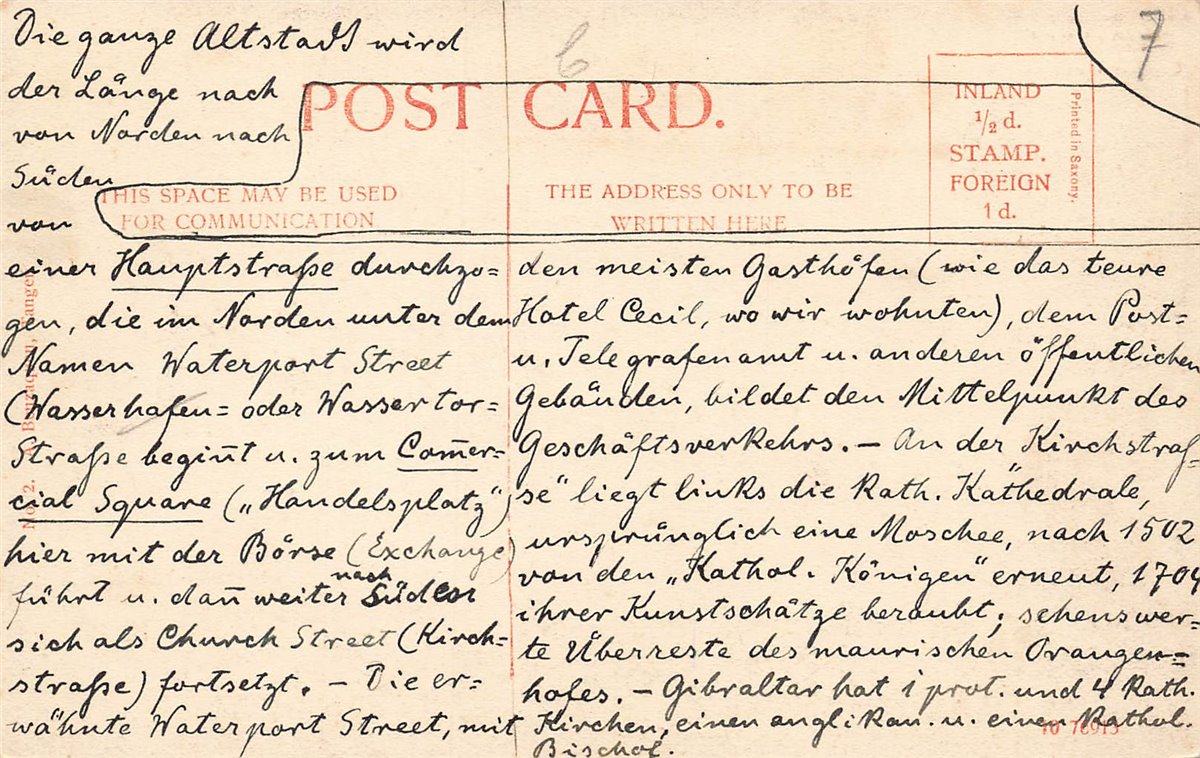 Die ganze Altstadt wird
der Länge nach
von Norden nach
Süden
von
einer Hauptstraße durchzo=
gen, die im Norden unter dem
Namen Waterport Street
(Wasserhafen= oder Wassertor-
Straße begin̄t u. zum Com̄er-
cial Square („Handelsplatz“)
hier mit der Börse (Exchange)
führt u. dan̄ weiter nach Süden
sich als Church Street (Kirch=
straße) fortsetzt. – Die er=
wähnte Waterport Street, mit
6
7
POST CARD.
THIS SPACE MAY BE USED
FOR COMMUNICATION
THE ADDRESS ONLY TO BE
WRITTEN HERE
INLAND
½ d.
STAMP.
FOREIGN
1 d.
Printed in Saxony.
den meisten Gasthöfen (wie das teure
Hotel Cecil, wo wir wohnten), dem Post-
u. Telegrafenamt u. anderen öffentlichen
Gebäuden, bildet den Mittelpunkt des
Geschäftsverkehrs. – An der Kirchstraß-
se“ liegt links die Kath. Kathedrale,
ursprünglich eine Moschee, nach 1502
von den „Kathol. Königen“ erneut, 1704
ihrer Kunstschätze beraubt; sehenswer=
te Überreste des maurischen Orangen=
hofes. – Gibraltar hat 1 prot. und 4 Kath.
Kirchen, einen anglikan. u. einen Kathol.
Bischof.
No. 2.